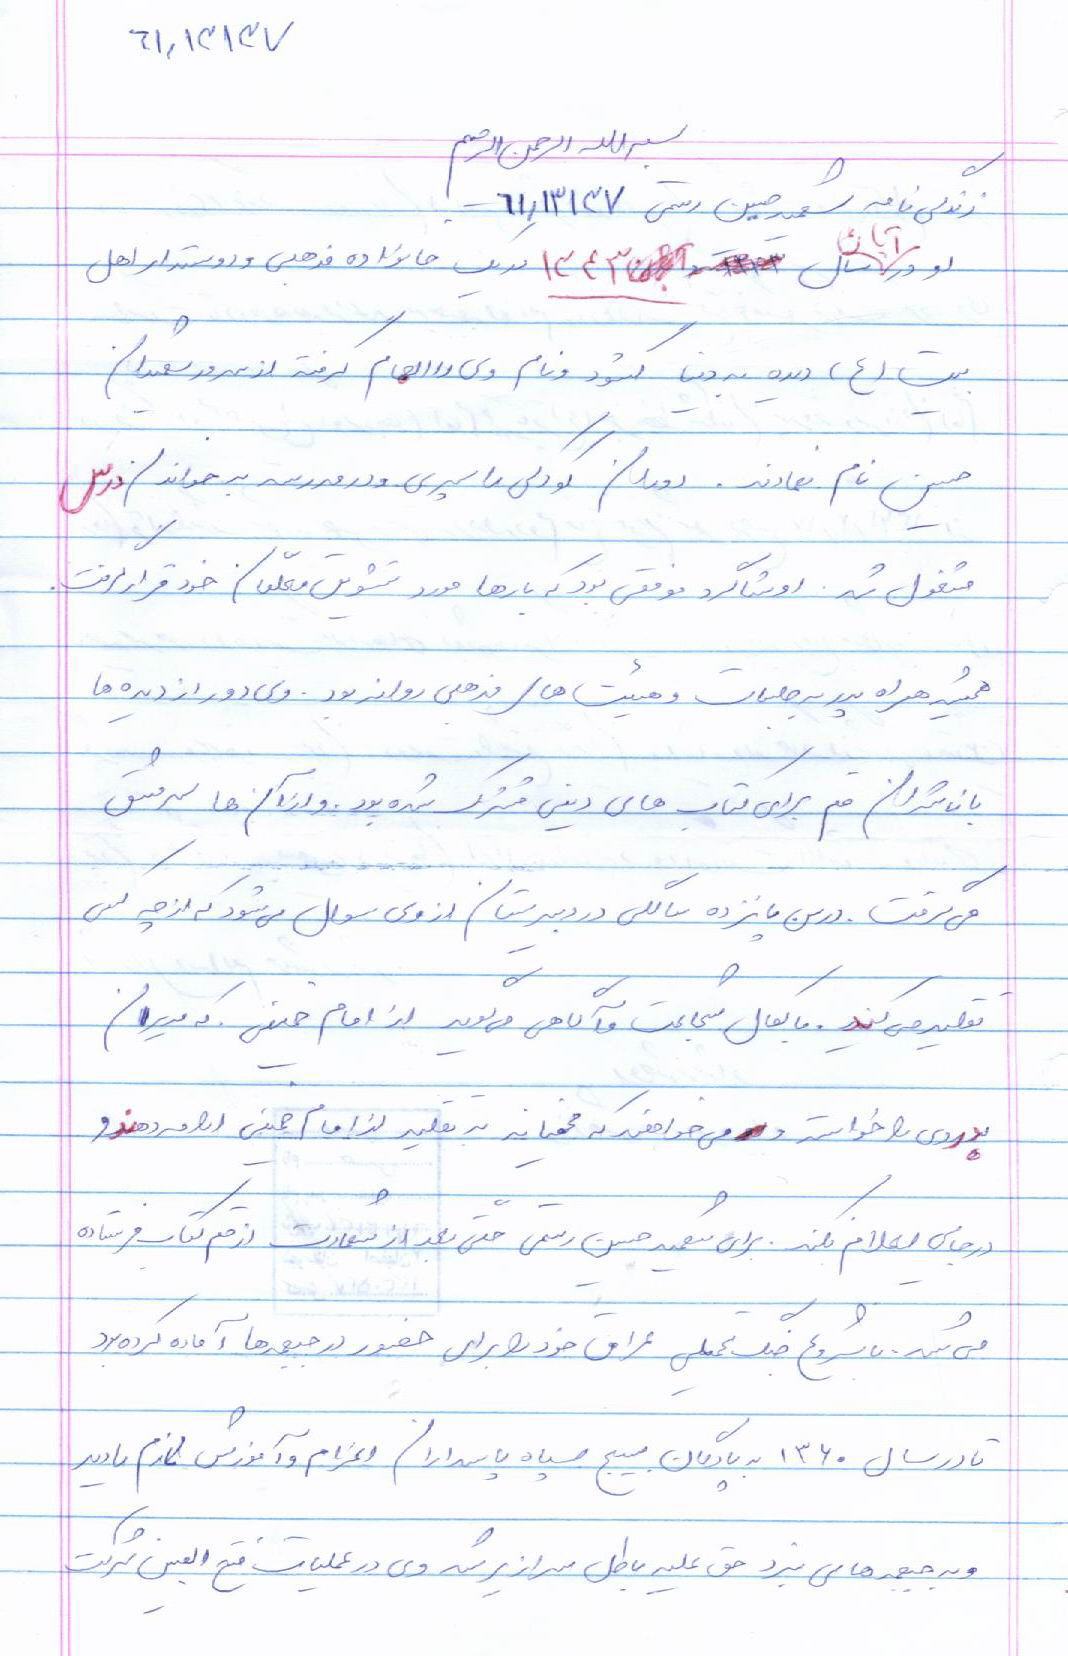 ۶۱,۱۳۱۳۷
بسم الله الرحمن الرحیم
زندگی نامه شهید حسین رستمی ۶۱,۱۳۱۳۷
او در آبان سال ۱۳۴۳ در یک خانواده مذهبی و دوستدار اهل
بیت (ع) دیده به دنیا گشود و نام وی را الهام گرفته از سرور شهیدان
حسین نام نهادند. دوران کودکی را سپری و در مدرسه به خواندن درس
مشغول شد. او شاگرد موفقی بود که بارها مورد تشویق معلّمان خود قرار گرفت.
همیشه همراه پدر به جلسات و هیئت های مذهبی روانه بود. وی دور از دیده ها
با ناشران قم برای کتاب های دینی مشترک شده بود. و از آن ها سرمشق
می گرفت. در سن پانزده سالگی در دبیرستان از وی سوال می شود که از چه کسی
تقلید می کنید. با کمال شجاعت و آگاهی می گوید از امام خمینی. که مدیران
پدر وی را خواسته و می خواهند که مخفیانه به تقلید از امام خمینی ادامه دهند و
در جایی اعلام نکند. برای شهید حسین رستمی حتّی بعد از شهادت از قم کتاب فرستاده
می شد. با شروع جنگ تحمیلی عراق خود را برای حضور در جبهه ها آماده کرده بود
تا در سال ۱۳۶۰ به پادگان بسیج سپاه پاسداران اعزام و آموزش لازم را دید
و به جبهه های نبرد حق علیه باطل سرازیر شد وی در عملیات فتح المبین شرکت